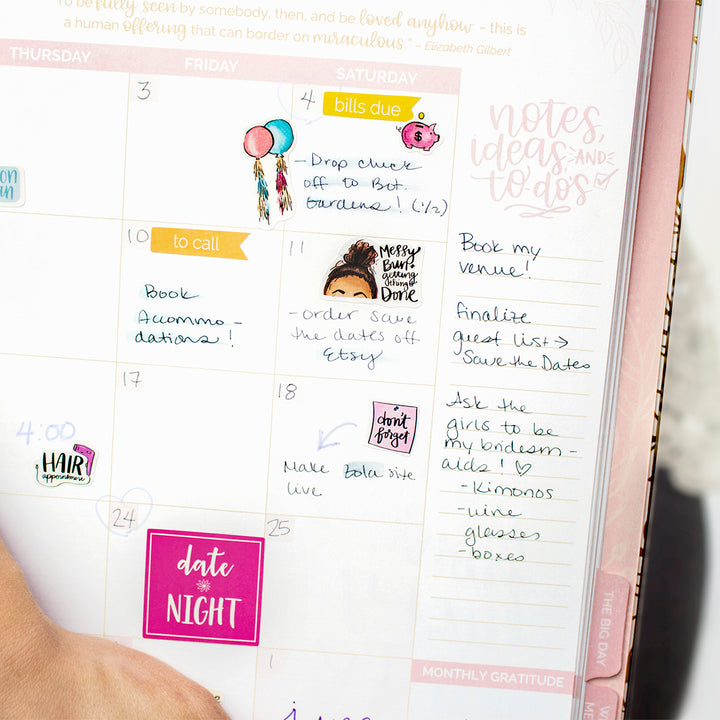 To be fully seen by somebody, then, and be loved anyhow – this is
a human offering that can border on miraculous." – Elizabeth Gilbert
THURSDAY FRIDAY SATURDAY
3
4
bills due
$
- Drop check
off to Bot.
Gardens! (1/2)
notes,
ideas, AND
to-do's
10
to call
Book
Accommo-
dations!
11
Messy
Bun +
getting
things
Done
- order save
the dates off
Etsy
Book my
venue!
finalize
guest list →
Save the Dates
Ask the
girls to be
my bridesm-
aids! ♡
- Kimonos
- wine
glasses
- boxes
4:00
HAIR
appointment
17
18
don't
forget
Make Zola site
live
24
date
NIGHT
25
1
THE BIG DAY
MONTHLY GRATITUDE